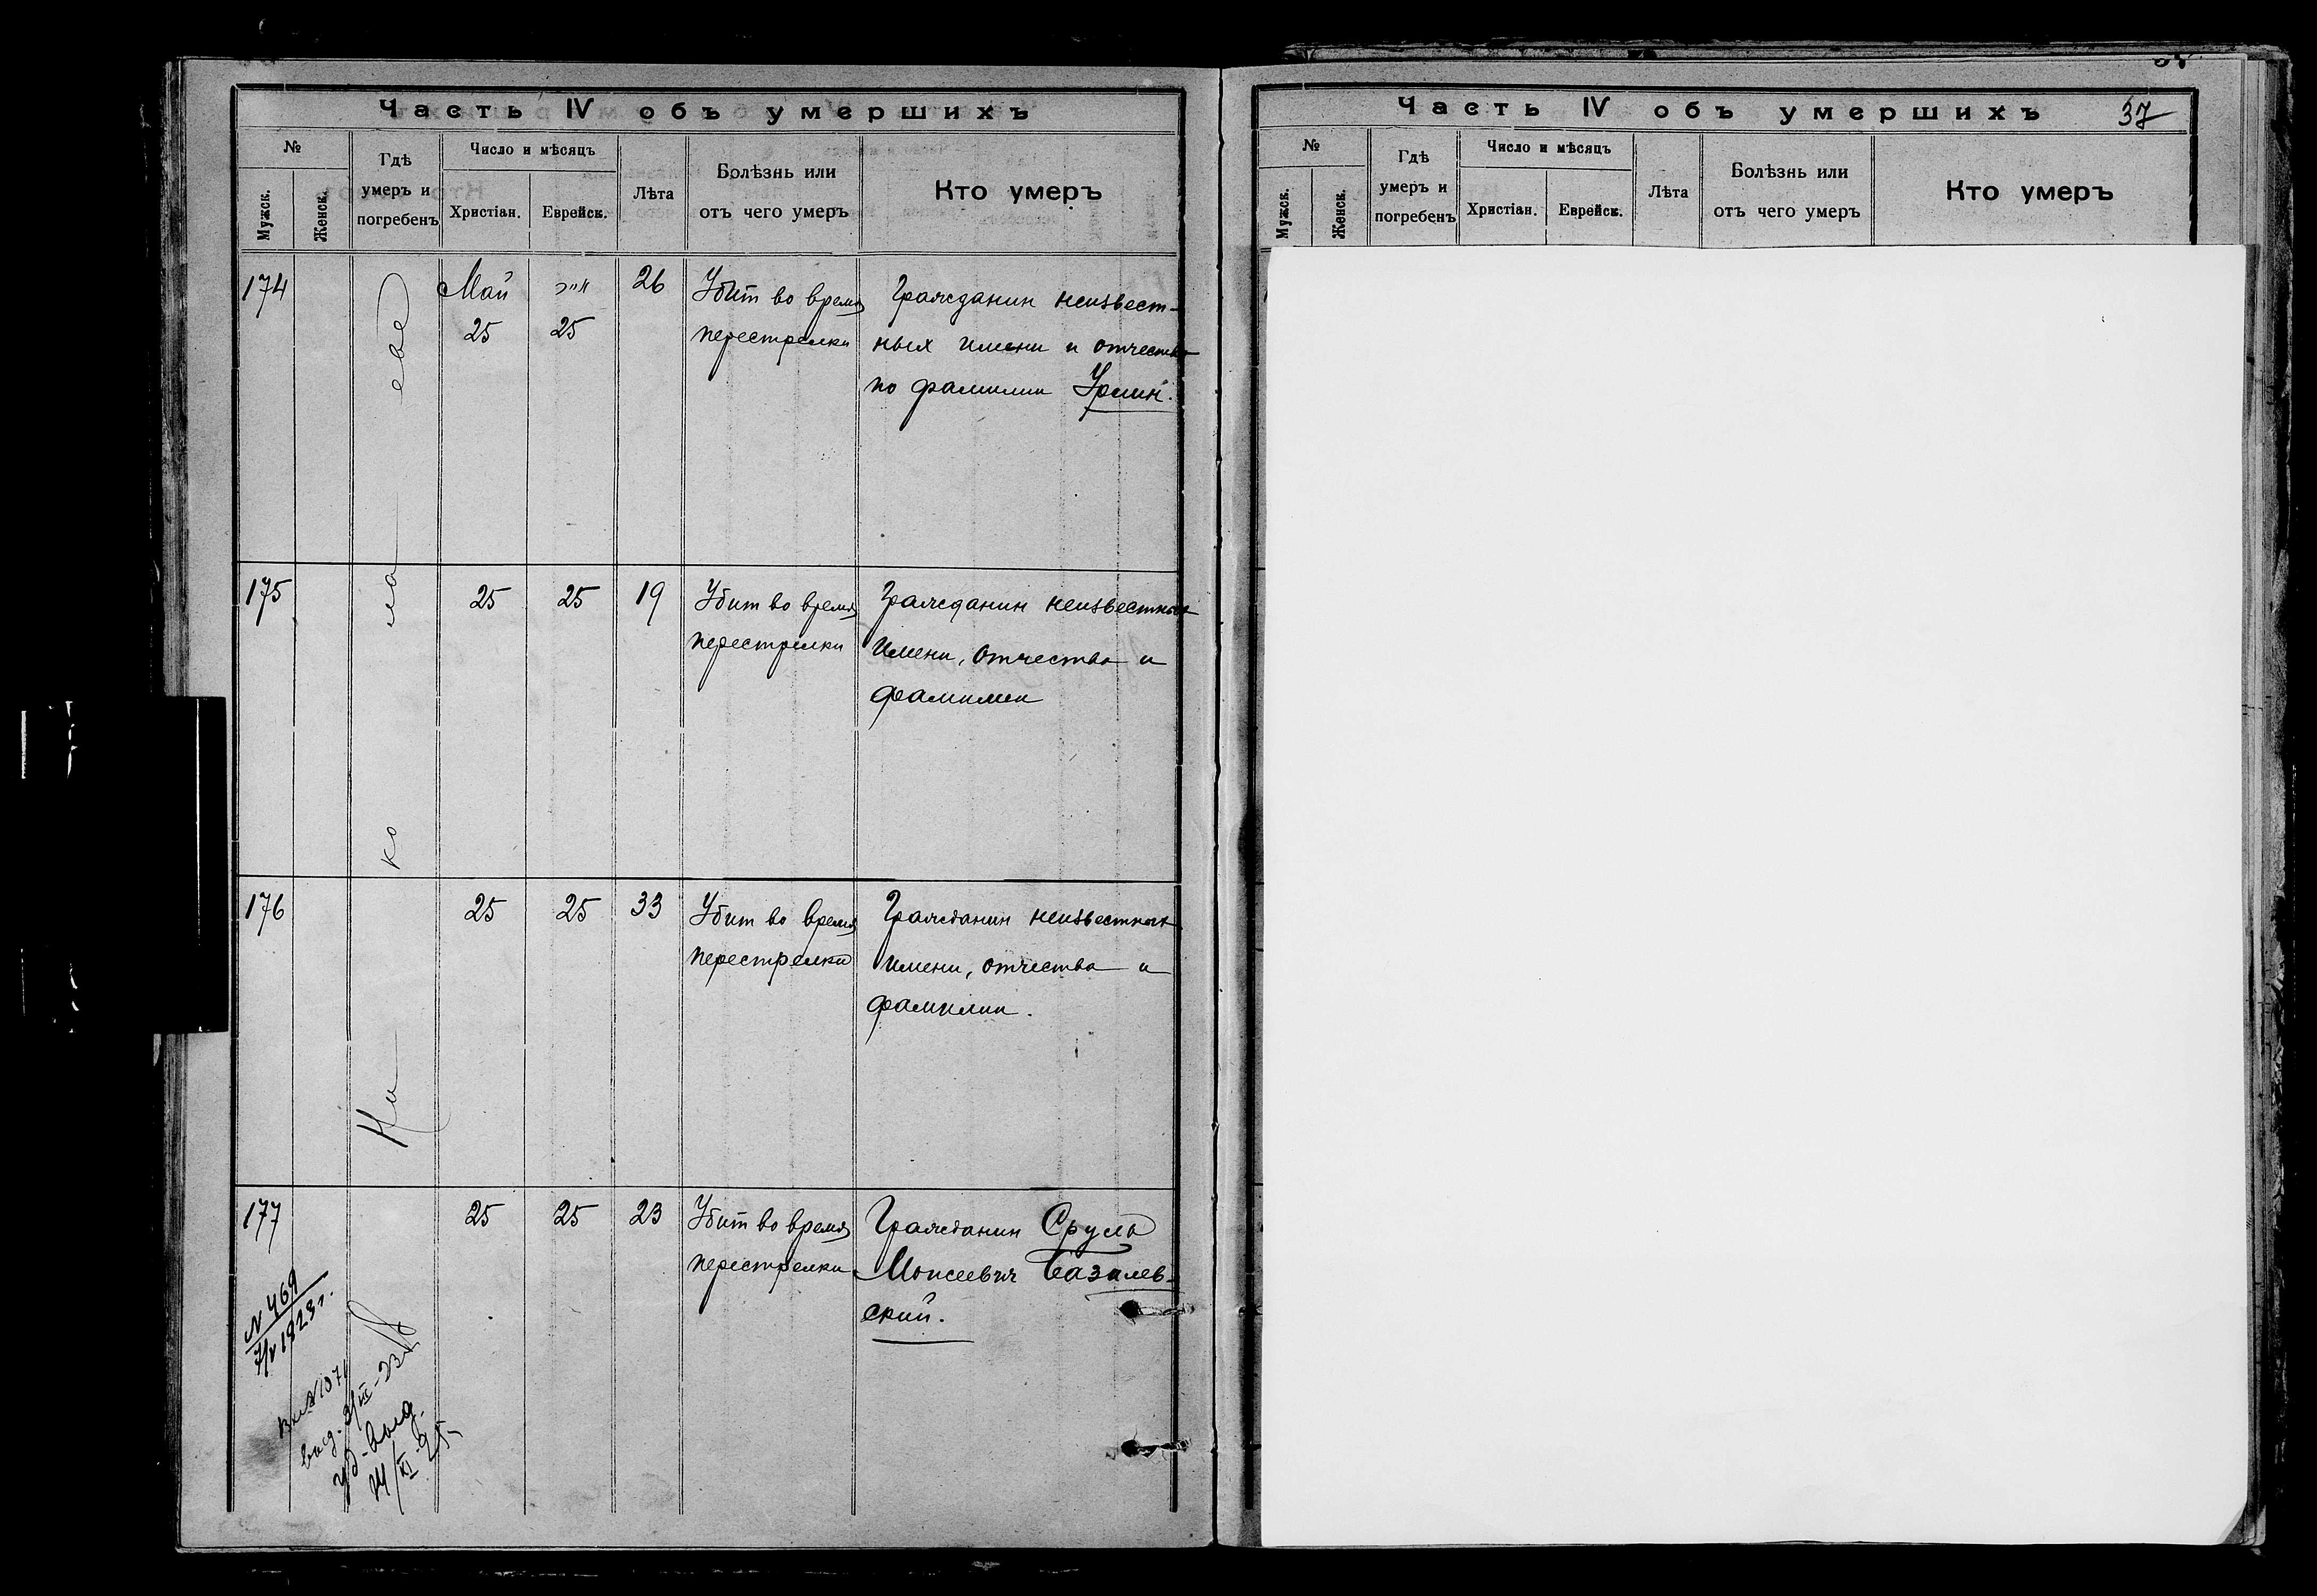 Часть IV объ умершихъ
№
Мужск.
Женск.
Гдѣ
умеръ и
погребенъ
Число и мѣсяцъ
Христіан.
Еврейск.
Лѣта
Болѣзнь или
отъ чего умеръ
Кто умеръ
174
Май
25
25
26
Убит во время
перестрелки
Гражданин неизвест-
ных имени и отчества
по фамилии
Николаеве
175
25
25
19
Убит во время
перестрелки
Гражданин неизвестных
имени, отчества и
фамилии
176
25
25
33
Убит во время
перестрелки
Гражданин неизвестных
имени, отчества и
фамилии.
177
25
25
23
Убит во время
перестрелки
Гражданин Сруль
Моисеевич Базилев-
ский.
N 469
7/V 1923 г.
14/XI-25
Часть IV объ умершихъ
37
№
Мужск.
Женск.
Гдѣ
умеръ и
погребенъ
Число и мѣсяцъ
Христіан.
Еврейск.
Лѣта
Болѣзнь или
отъ чего умеръ
Кто умеръ